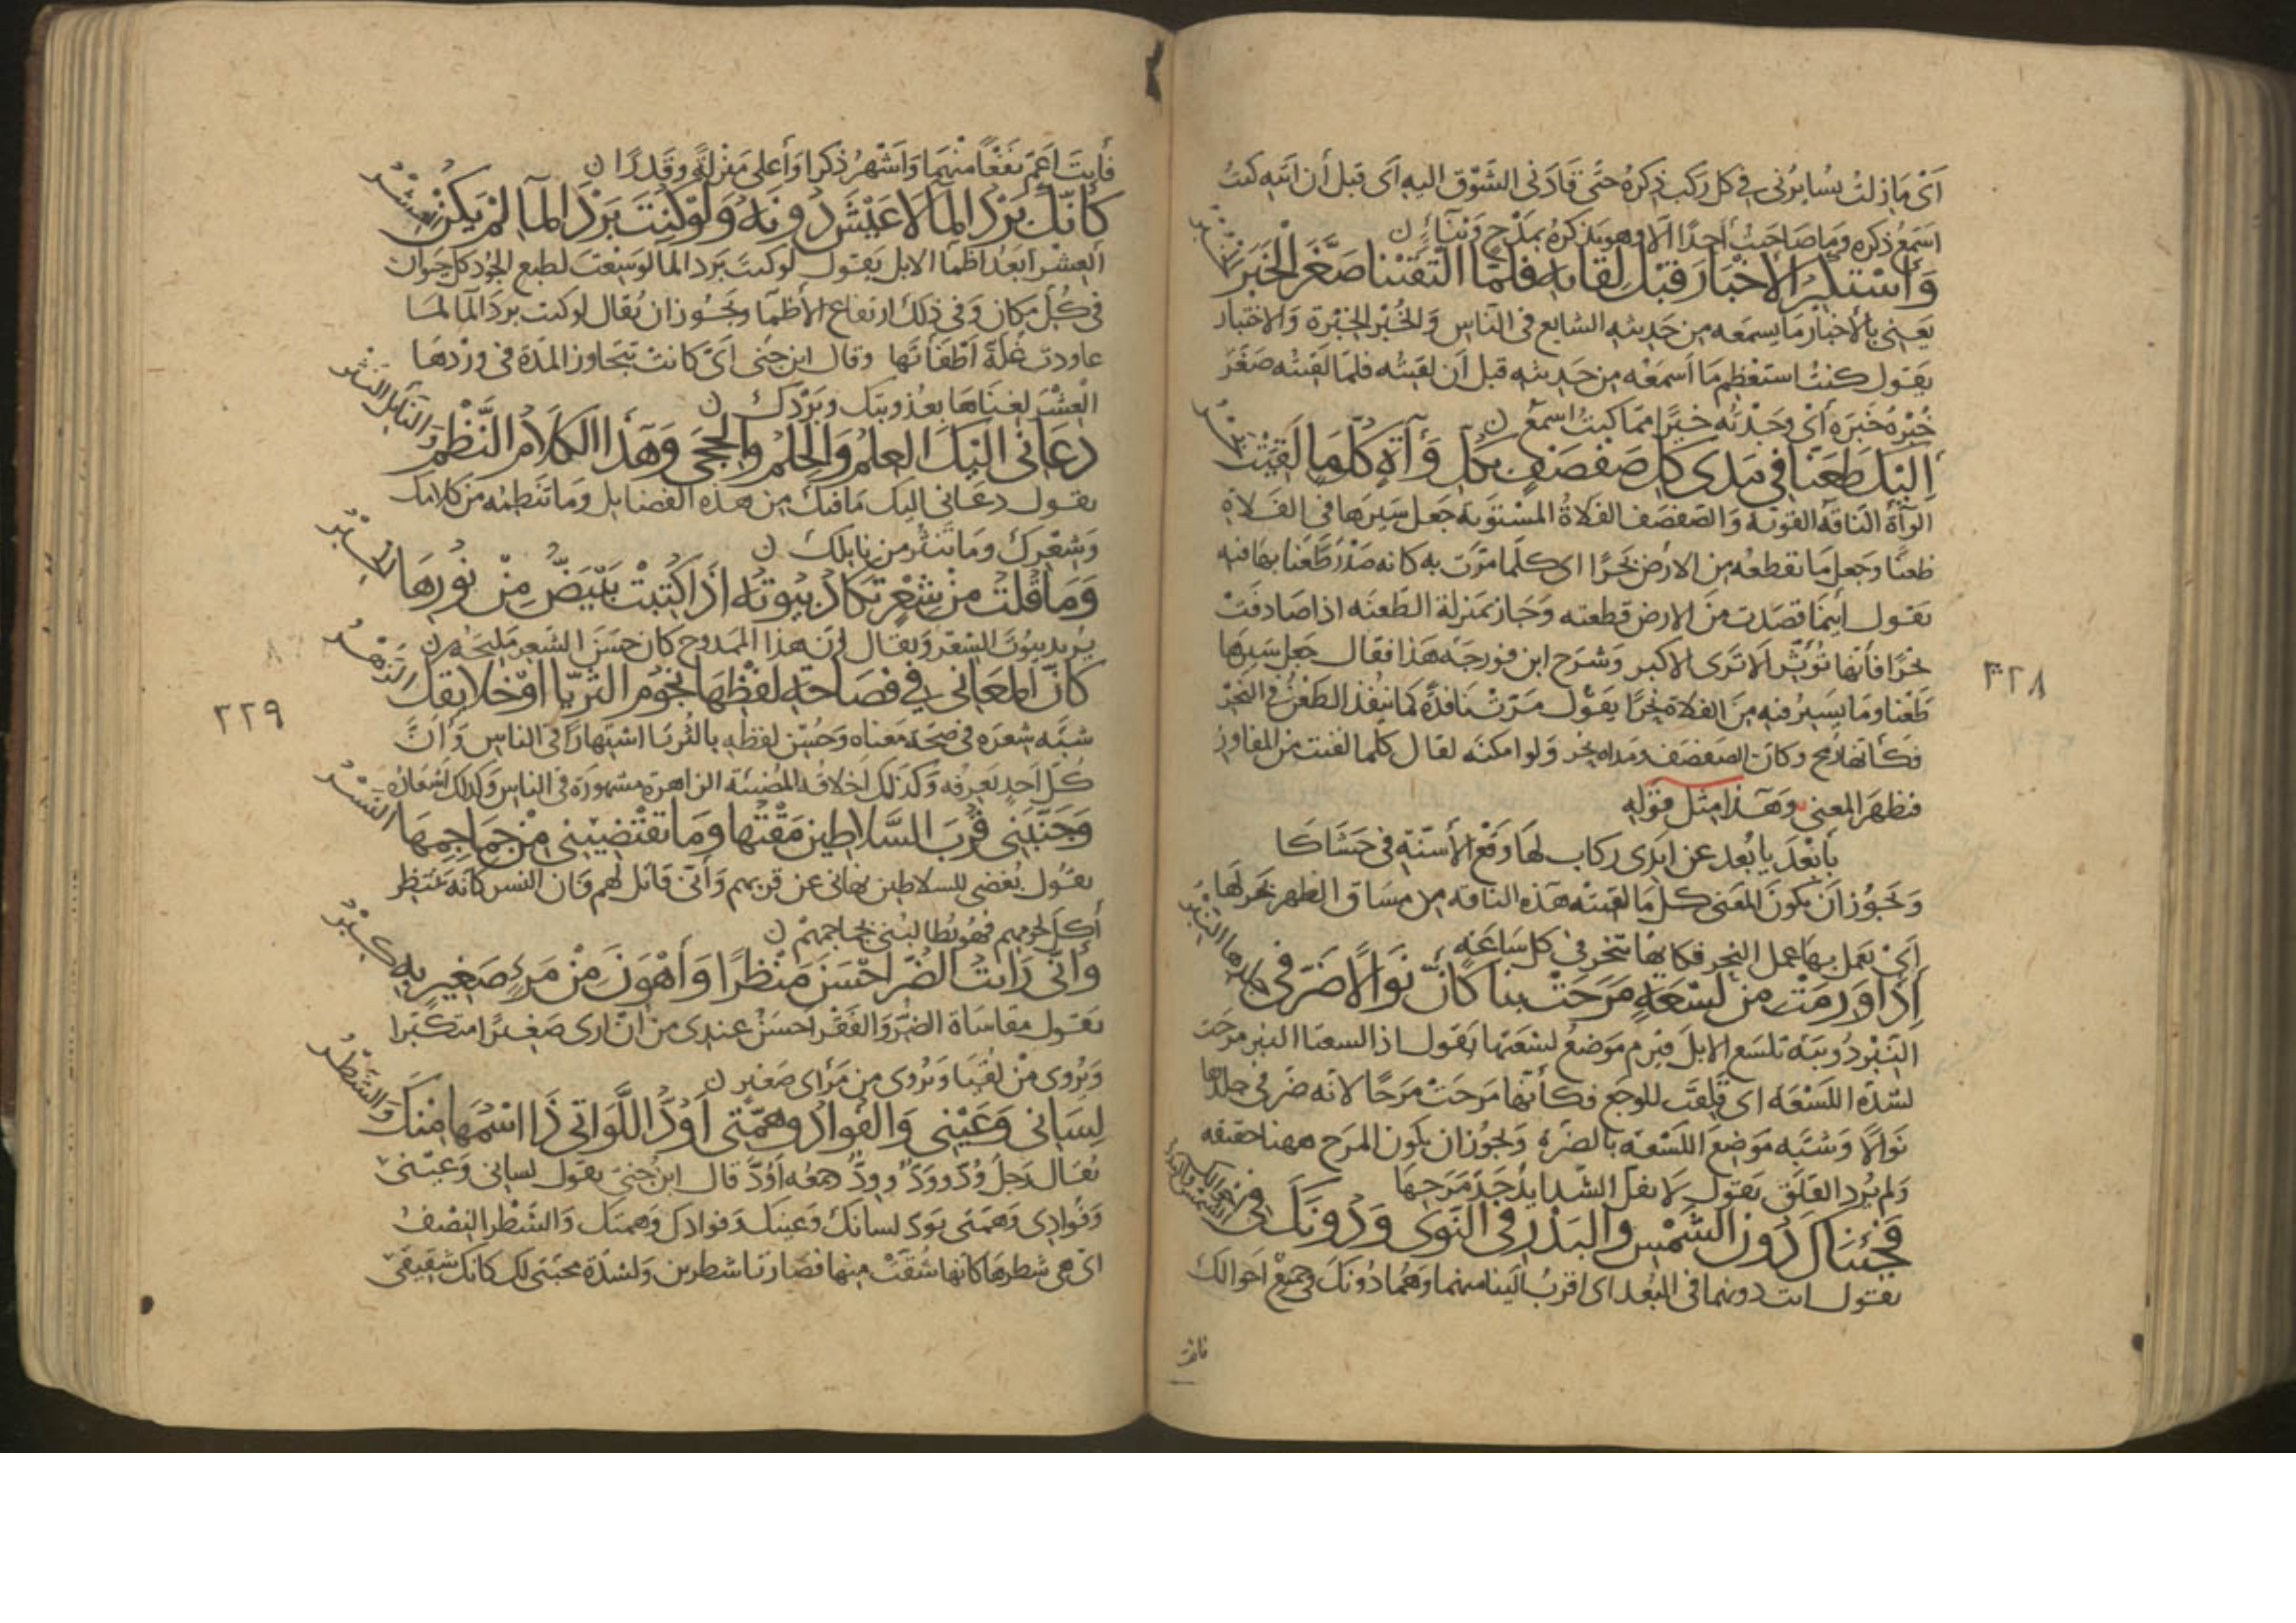 أي ما زلت يسايرني في كل ركب ذكره حتى قادني الشوق اليه أي قبل أن اتيه كنت
اسمع ذكره وما صاحبت أحدًا الا وهو يذكره بمدح وثناء ن
وأستكبر الأخبار قبل لقائه فلما التقينا صغر الخبر الخبر
يعني بالأخبار ما يسمعه من حديثه الشايع في الناس والخبر الخبرة والاختبار
يقول كنت استعظم ما أسمعه من حديثه قبل أن لقيته فلما لقيته صغر
خبره خبره أي وجدته خيرًا مما كنت اسمع ن
اليك طعنا في مدى كل صفصف بكل وآة كلما لقيت نحر
الوآة الناقة القوية والصفصف الفلاة المستوية جعل سيرها في الفلاة
طعنًا وجعل ما تقطعه من الارض نحرًا اي كلما مرت به كانه صدر طعنا بها فيه
يقول اينما قصدت من الارض قطعته وجاز بمنزلة الطعنه اذا صادفت
نحرًا فأنها تؤثر الا ترى الاكبر وشرح ابن فورجه هذا فقال جعل سيرها
طعنا وما يسير فيه من الفلاة نحرًا يقول مرت نافذة كما ينفذ الطعن في النحر
فكأنها رمح وكان الصفصف ومداه نحر ولو امكنه لقال كلما لقيت من المفاوز
فظهر المعنى وهذا مثل قوله
يابعد يا بعد عن ايدى ركاب لها وقع الأسنة في حشاكا
ويجوز ان يكون المعنى كل ما لقيته هذه الناقه من مساق الظهر نحر لها
أي يعمل بها عمل النحر فكانها تنحر في كل ساعة
إذا ورمت من لسعة مرحت بنا كأن نوالا صر في جلدها النبر
النبر دويبة تلسع الابل فيرم موضع لسعتها يقول اذا لسعتها النبر مرحت
لشدة اللسعه اى قلقت للوجع فكأنها مرحت مرحًا لانه صر في جلدها
نوالا وشبه موضع اللسعه بالصره ويجوز ان يكون المرح ههنا حقيقه
ولم يرد القلق يقول لا تفل الشدايد جد مرحها
فجئناك دون الشمس والبدر في النوى ودونك في احوالك الشمس والبدر
يقول انت دونهما في البعد اى اقرب الينا منهما وهما دونك في جميع احوالك
فانت
٣٢٨
فأنت أعم نفعًا منهما وأشهر ذكرا وأعلى منزلة وقدرًا ن
كأنك برد الما لا عيش دونه ولو كنت برد الما لم يكن العشر
العشر ابعد اظما الابل يقول لو كنت برد الما لوسعت لطبع الجود كل حيوان
في كل مكان وفي ذلك ارتفاع الأظما ويجوز ان يقال لو كنت برد الما لما
عاودت غلة أطفأتها وقال ابن جني أي كانت تتجاوز المدة في وردها
العشر لغناها بعذوبتك وبردك ن
دعاني اليك العلم والحلم والحجى وهذا الكلام النظم والنائل النثر
يقول دعاني اليك ما فيك من هذه الفضايل وما تنظمه من كلامك
وشعرك وما تنثر من نايلك ن
وما قلت من شعر تكاد بيوته اذا كتبت يبيض من نورها الحبر
يريد بيوت الشعر ويقال إن هذا الممدوح كان حسن الشعر مليحه ن
كأن المعاني في فصاحة لفظها نجوم الثريا او خلايقك الزهر
شبه شعره في صحة معناه وحسن لفظه بالثريا اشتهارًا في الناس وأن
كل احد يعرفه وكذلك اخلاقه المضيئة الزاهرة مشهورة في الناس وكذلك اشعاره
وجنبني قرب السلاطين مقتها وما تقتضيني من جماجمها النسر
يقول بغضى للسلاطين نهاني عن قربهم وأني قاتل لهم وان النسر كانه ينتظر
أكل لحومهم فهو يطالبني بجماجمهم ن
واني رايت الضر احسن منظرًا وأهون من مرء صغير به كبر
يقول مقاساة الضر والفقر أحسن عندى من ان ارى صغيرًا متكبرا
ويروى من لقيا ويروى من مرأى صغير ن
لساني وعيني والفؤاد وهمتي أود اللواتي ذا اسمها منك والشطر
يقال رجل ود وود وود جمعه أود قال ابن جني يقول لساني وعيني
وفوادى وهمتي تود لسانك وعينك وفوادك وهمتك والشطر النصف
اى هي شطرها كانها شقت منها فصارتا شطرين ولشدة محبتي لك كانك شقيقي
٣٢٩